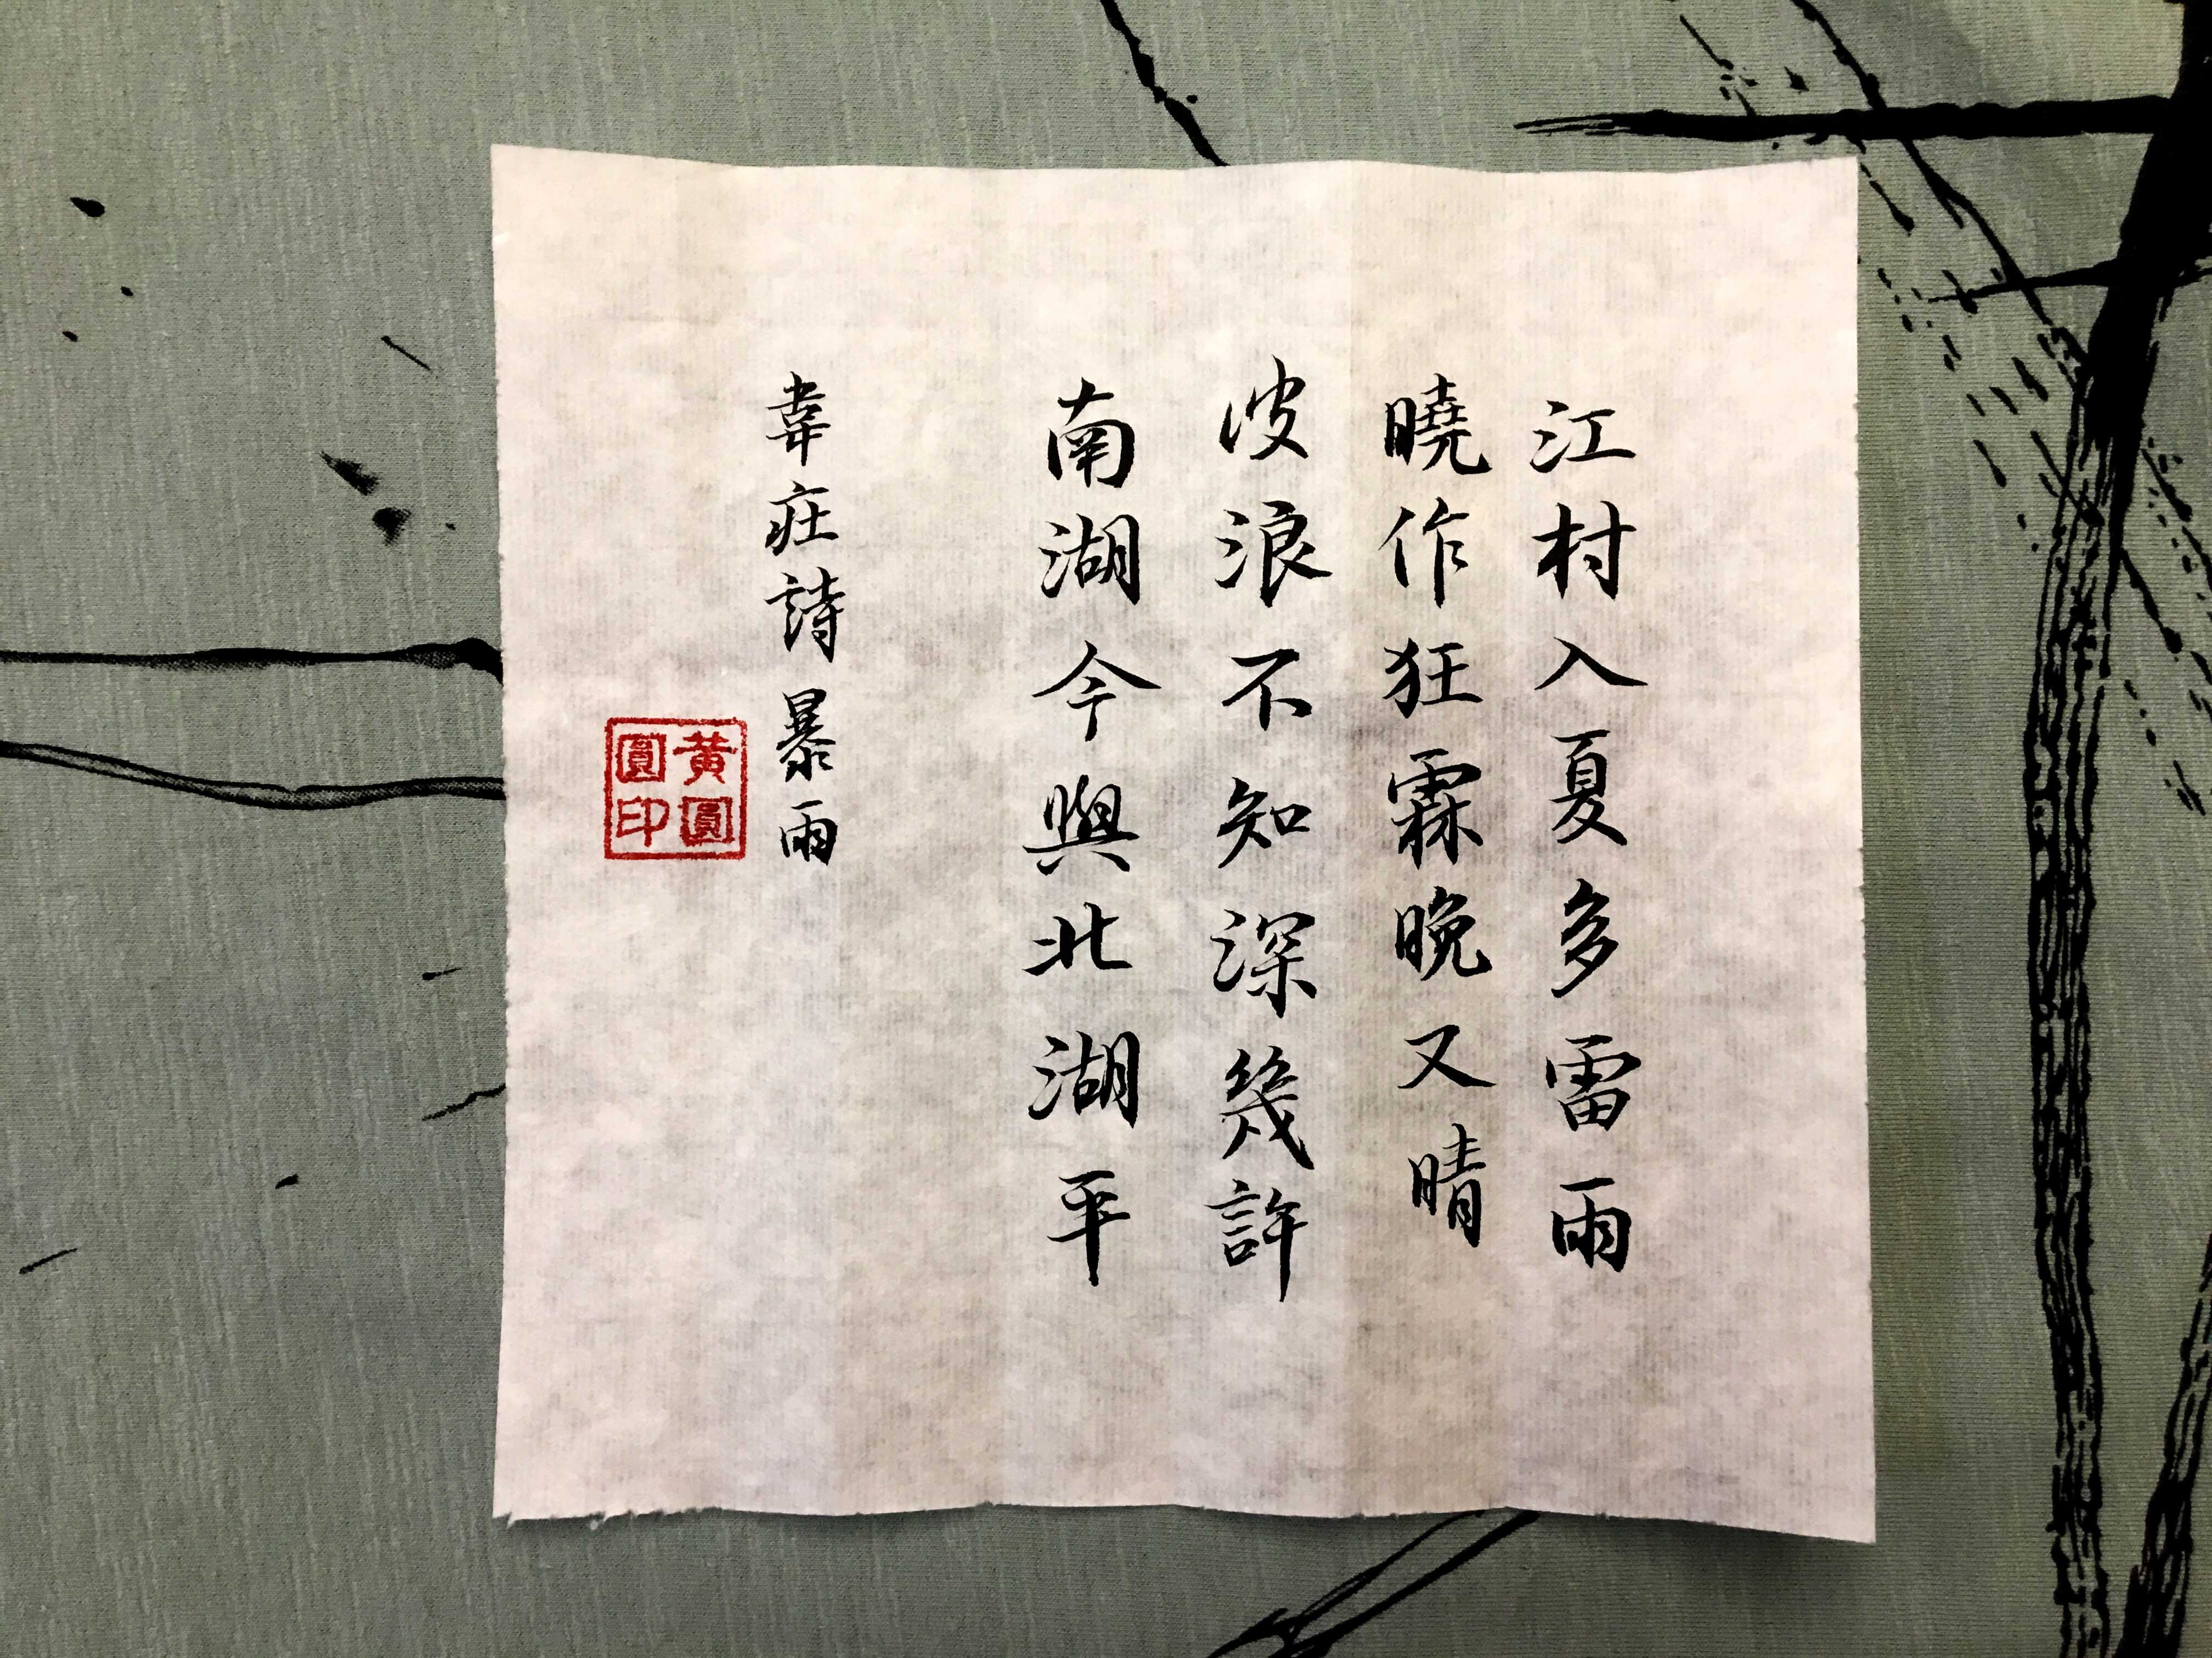 江村入夏多雷雨
曉作狂霖晚又晴
波浪不知深幾許
南湖今與北湖平
韋莊詩 暴雨
黃圓圓印